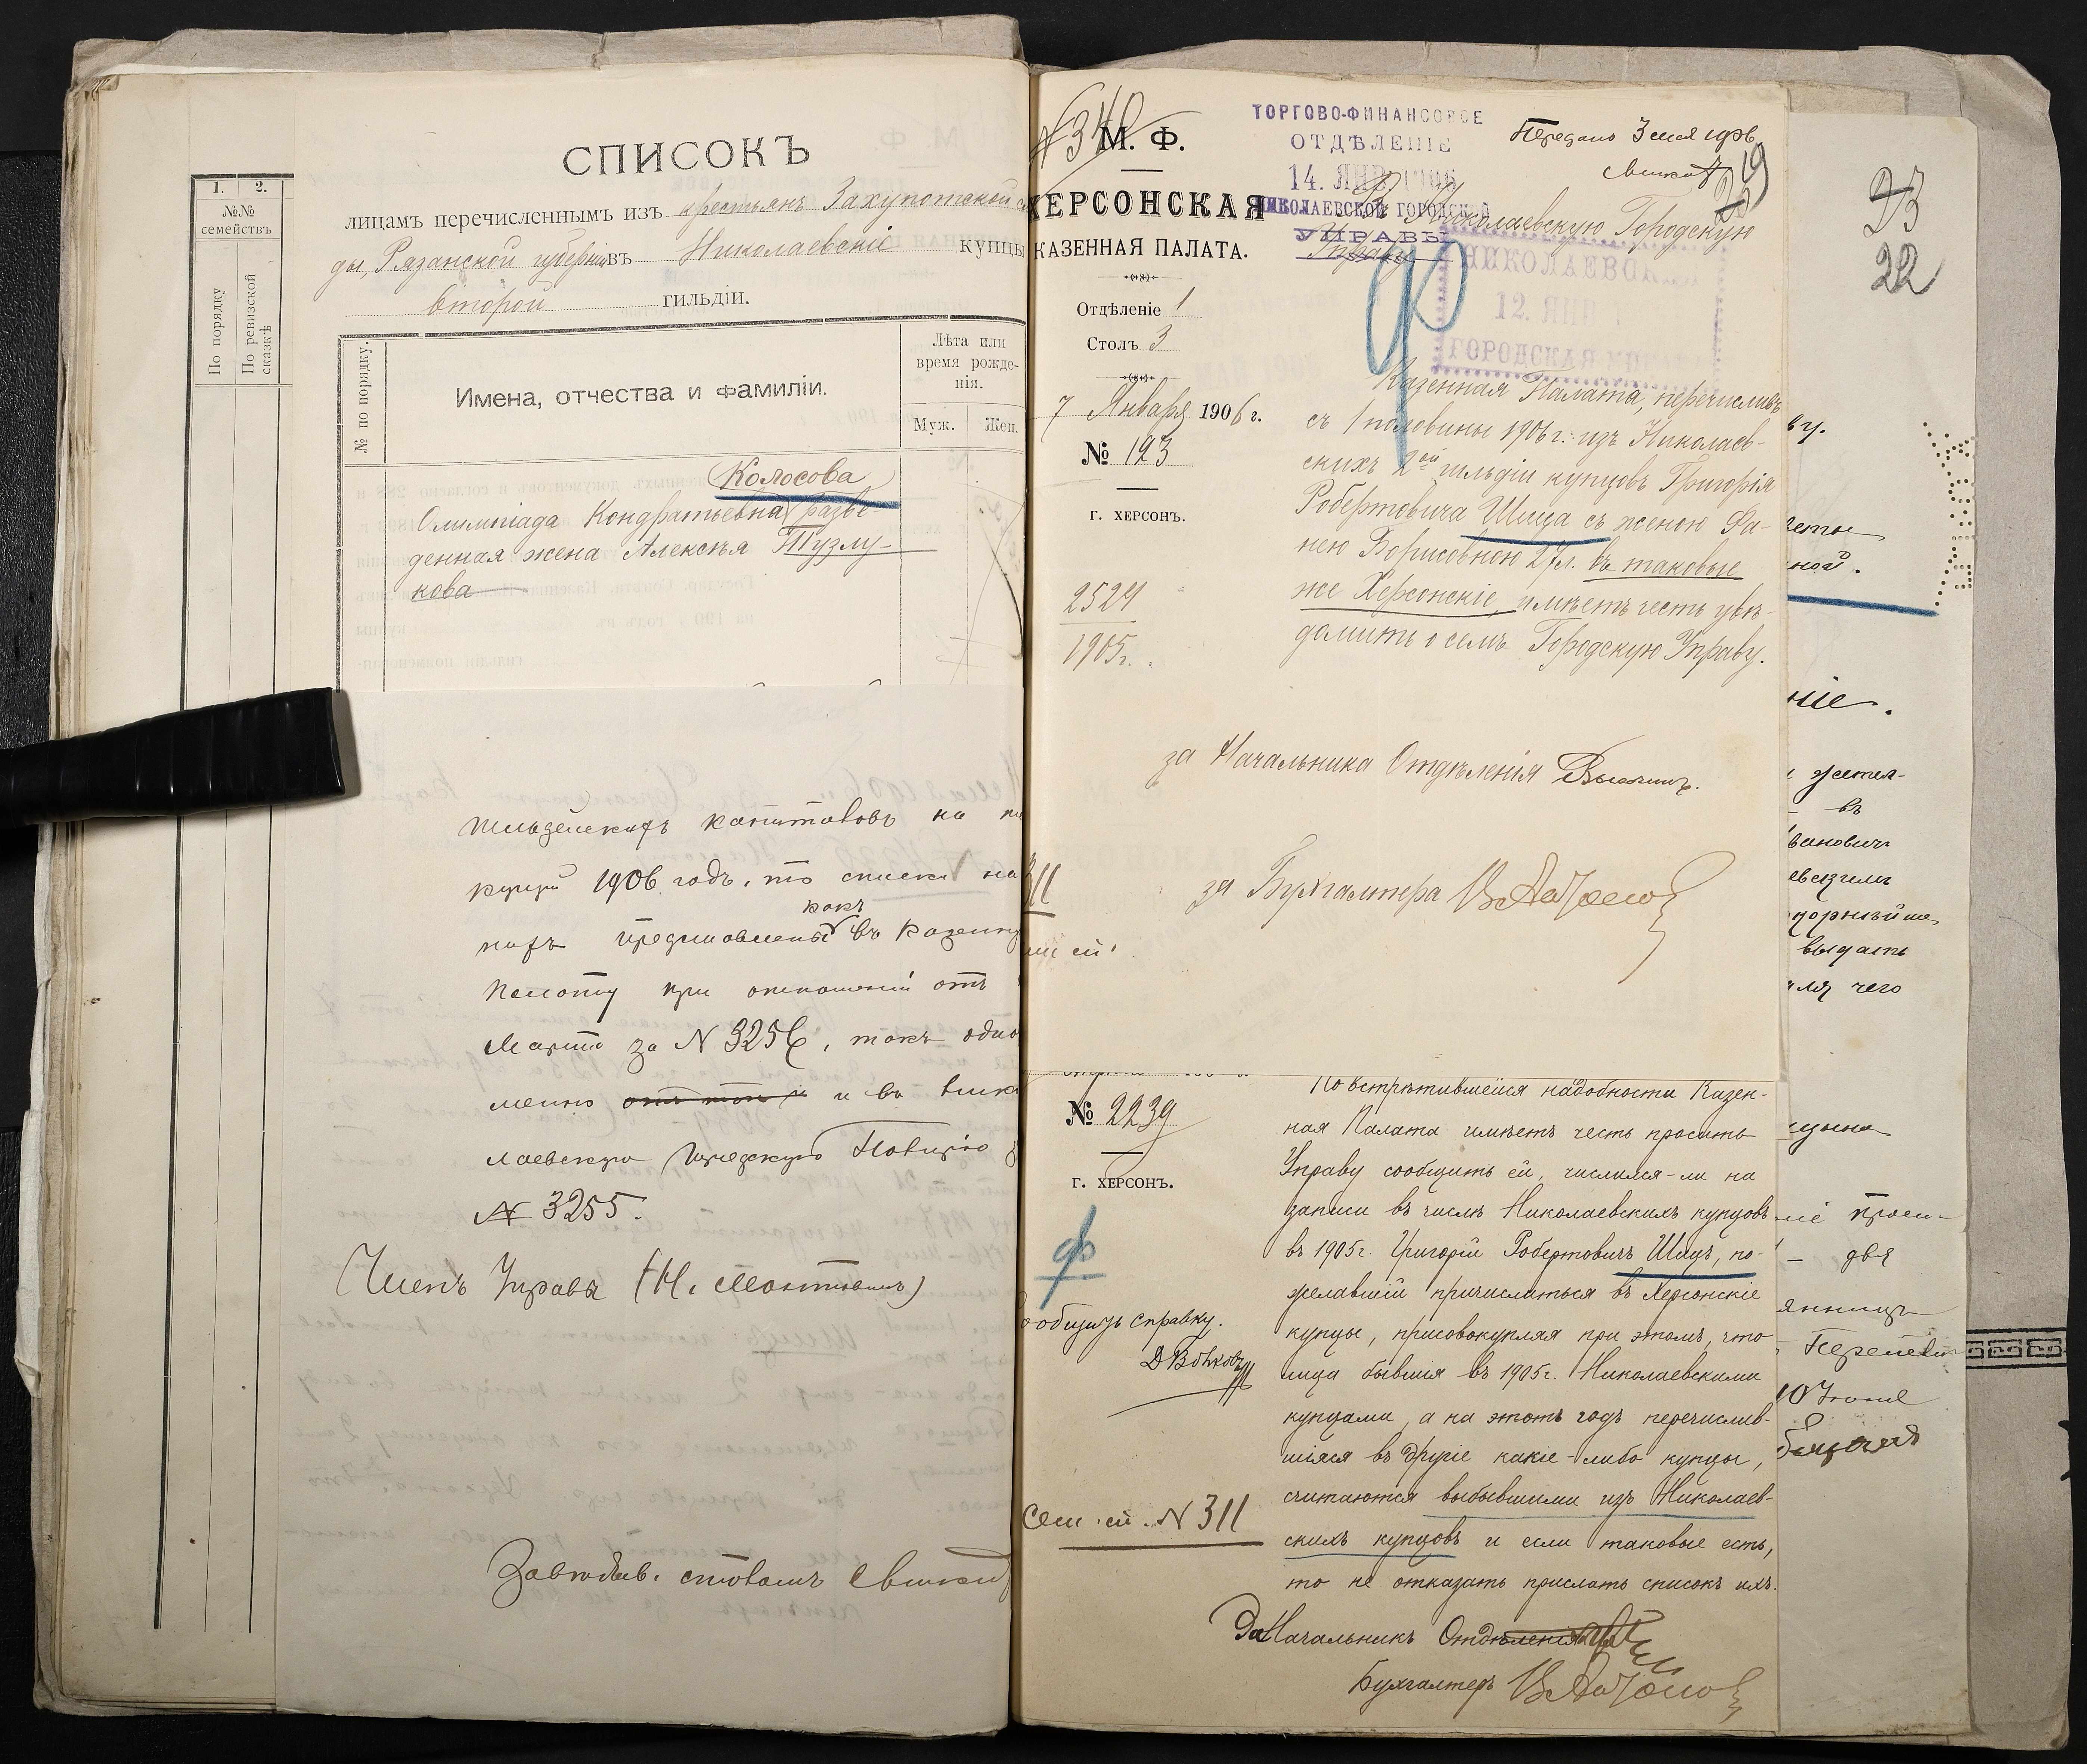 1. 2.
№№
семействъ
По порядку
По ревизской
сказкѣ
СПИСОКЪ
лицамъ перечисленнымъ изъ крестьянъ
ды, Рязанской губерніи въ Николаевскіе купцы
второй гильдіи.
№ по порядку.
Имена, отчества и фамиліи.
Лѣта или
время рожде-
нія.
Муж. Жен.
Колосова
Олимпіада Кондратьевна разве-
денная жена Алексѣя Тузлу-
кова
капиталовъ на
1906 годъ, то списки
какъ
представлены въ Казенну
Палату при отношеніи отъ
Марта за N 3256, такъ одно
менно и въ
лаевскую Городскую Полицію
N 3255.
Членъ Управы
Завѣдыв. столомъ
N 340
М. Ф.
ХЕРСОНСКАЯ
КАЗЕННАЯ ПАЛАТА.
Отдѣленіе 1
Столъ 3
7 Января 1906 г.
№ 123
г. ХЕРСОНЪ.
2524
1905г.
ТОРГОВО-ФИНАНСОВОЕ
ОТДѢЛЕНІЕ
14. ЯНВ. 1906
НИКОЛАЕВСКОЙ ГОРОДСКОЙ
УПРАВЫ
Передано 3 мая 1906
19
23
22
Въ Николаевскую Городскую
Управу
НИКОЛАЕВСКАЯ
12. ЯНВ.
ГОРОДСКАЯ УПРАВА
Казенная Палата, перечисливъ
съ 1 половины 1906 г. изъ Николаев-
скихъ 2ой гильдіи купцовъ Григорія
Робертовича Шица съ женою Фа-
нею Борисовною 27 л. въ таковые
же Херсонскіе, имѣетъ честь увѣ-
домить о семъ Городскую Управу.
за Начальника Отдѣленія
за Бухгалтера
№ 2239
г. ХЕРСОНЪ.
По встрѣтившейся надобности Казен-
ная Палата имѣетъ честь просить
Управу сообщить ей, числился-ли на
записи въ числѣ Николаевскихъ купцовъ
въ 1905г. Григорій Робертовичъ Шицъ, по-
желавшій причислиться въ Херсонскіе
купцы, присовокупляя при этомъ, что
лица бывшія въ 1905г. Николаевскими
купцами, а на этотъ годъ перечислив-
шіяся въ другіе какіе-либо купцы,
считаются выбывшими изъ Николаев-
скихъ купцовъ и если таковые есть,
то не отказать прислать списокъ ихъ.
справку.
N 311
За Начальникъ Отдѣленія
Бухгалтеръ
ву.
ной.
ніе.
въ
выдать
для чего